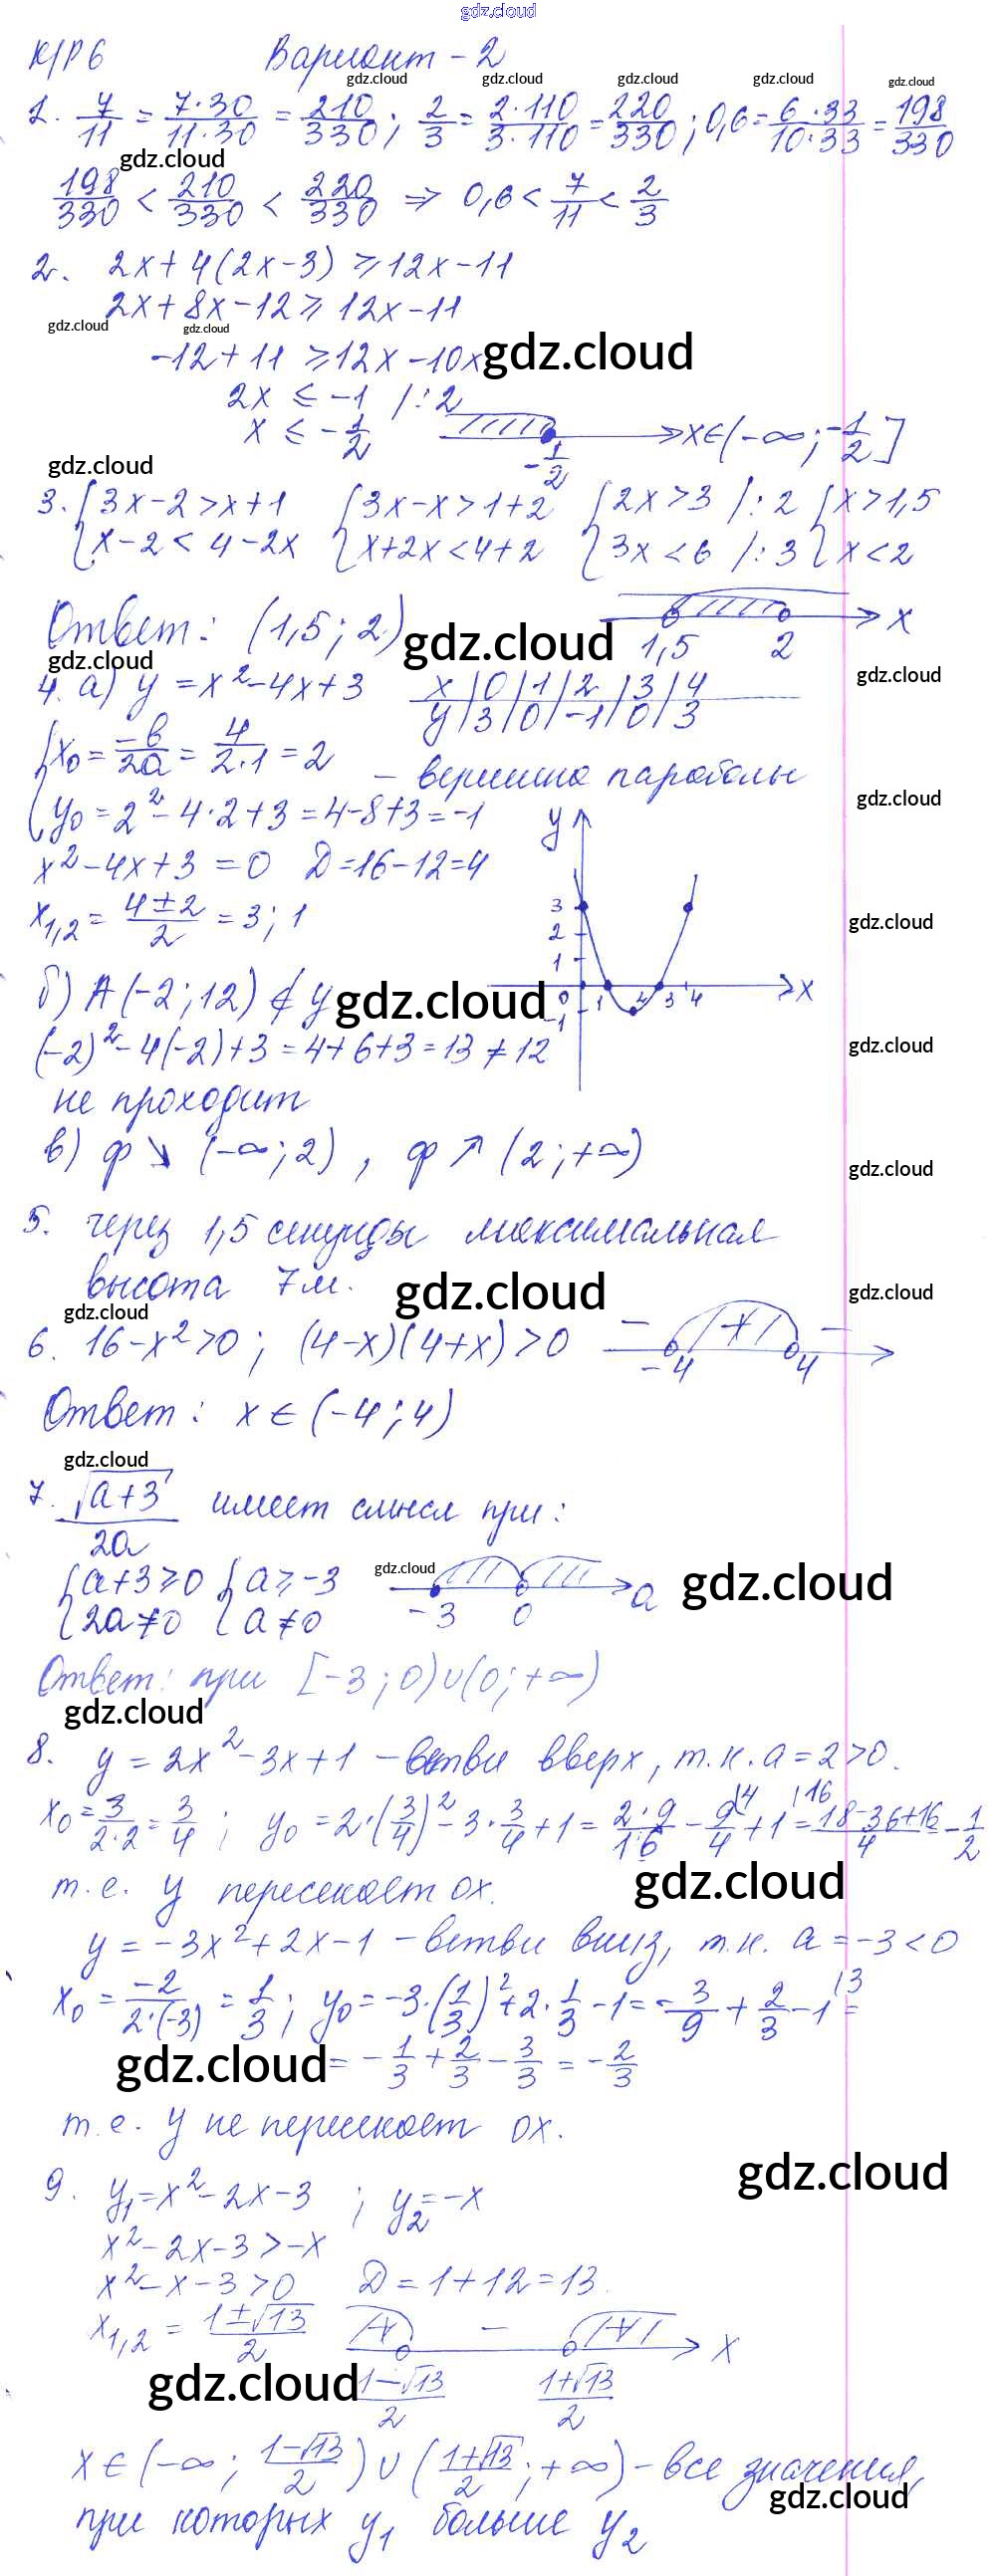 gdz.cloud
К/Р 6 Вариант - 2
gdz.cloud gdz.cloud gdz.cloud gdz.cloud gdz.cloud
1. 7/11 = 7·30/11·30 = 210/330 ; 2/3 = 2·110/3·110 = 220/330 ; 0,6 = 6·33/10·33 = 198/330
gdz.cloud
198/330 < 210/330 < 220/330 ⇒ 0,6 < 7/11 < 2/3
2. 2x + 4(2x-3) ≥ 12x-11
2x + 8x - 12 ≥ 12x - 11
gdz.cloud gdz.cloud
-12 + 11 ≥ 12x - 10x gdz.cloud
2x ≤ -1 /:2
x ≤ -1/2 -1/2 x∈(-∞; -1/2]
gdz.cloud
3. { 3x-2 > x+1 { 3x-x > 1+2 { 2x > 3 /:2 { x > 1,5 gdz.cloud
x-2 < 4-2x x+2x < 4+2 3x < 6 /:3 x < 2
Ответ: (1,5; 2) gdz.cloud 1,5 2 x
gdz.cloud gdz.cloud
4. а) y = x²-4x+3 x|0|1|2|3|4
y|3|0|-1|0|3
{ x₀ = -b/2a = 4/2·1 = 2 - вершина параболы
y₀ = 2² - 4·2+3 = 4-8+3 = -1 gdz.cloud
x²-4x+3 = 0 D = 16-12 = 4 y
x₁,₂ = 4±2/2 = 3; 1 3 2 1 gdz.cloud
б) A(-2; 12) ∉ y gdz.cloud -1 0 1 2 3 4 x
(-2)² - 4(-2)+3 = 4+6+3 = 13 ≠ 12 gdz.cloud
не проходит
в) ф ↘ (-∞; 2), ф ↗ (2; +∞) gdz.cloud
5. через 1,5 секунды максимальная
высота 7м. gdz.cloud gdz.cloud
gdz.cloud
6. 16-x² > 0; (4-x)(4+x) > 0 - + - -4 4
Ответ: x ∈ (-4; 4)
gdz.cloud
7. √a+3/2a имеет смысл при:
{ a+3 ≥ 0 { a ≥ -3 gdz.cloud gdz.cloud
2a ≠ 0 a ≠ 0 -3 0 a
Ответ: при [-3; 0)∪(0; +∞)
gdz.cloud
8. y = 2x² - 3x + 1 - ветви вверх, т.к. a = 2 > 0.
x₀ = 3/2·2 = 3/4 ; y₀ = 2·(3/4)² - 3·3/4 + 1 = 2·9/16 - 9/4 |4 + 1 |16 = 18-36+16/4 = -1/2
gdz.cloud
т.е. y пересекает ox.
y = -3x² + 2x - 1 - ветви вниз, т.к. a = -3 < 0
x₀ = -2/2·(-3) = 1/3 ; y₀ = -3·(1/3)² + 2·1/3 - 1 = -3/9 + 2/3 - 1 |3 =
gdz.cloud = -1/3 + 2/3 - 3/3 = -2/3
т.е. y не пересекает ox.
gdz.cloud
9. y₁ = x² - 2x - 3 ; y₂ = -x
x² - 2x - 3 > -x
x² - x - 3 > 0 D = 1 + 12 = 13.
x₁,₂ = 1±√13/2 + - + x
gdz.cloud 1-√13/2 1+√13/2
x ∈ (-∞; 1-√13/2) ∪ (1+√13/2; +∞) - все значения,
gdz.cloud
при которых y₁ больше y₂